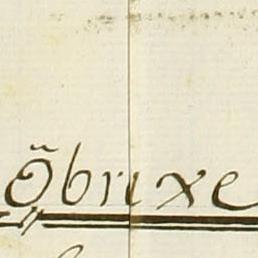 Õbruxe